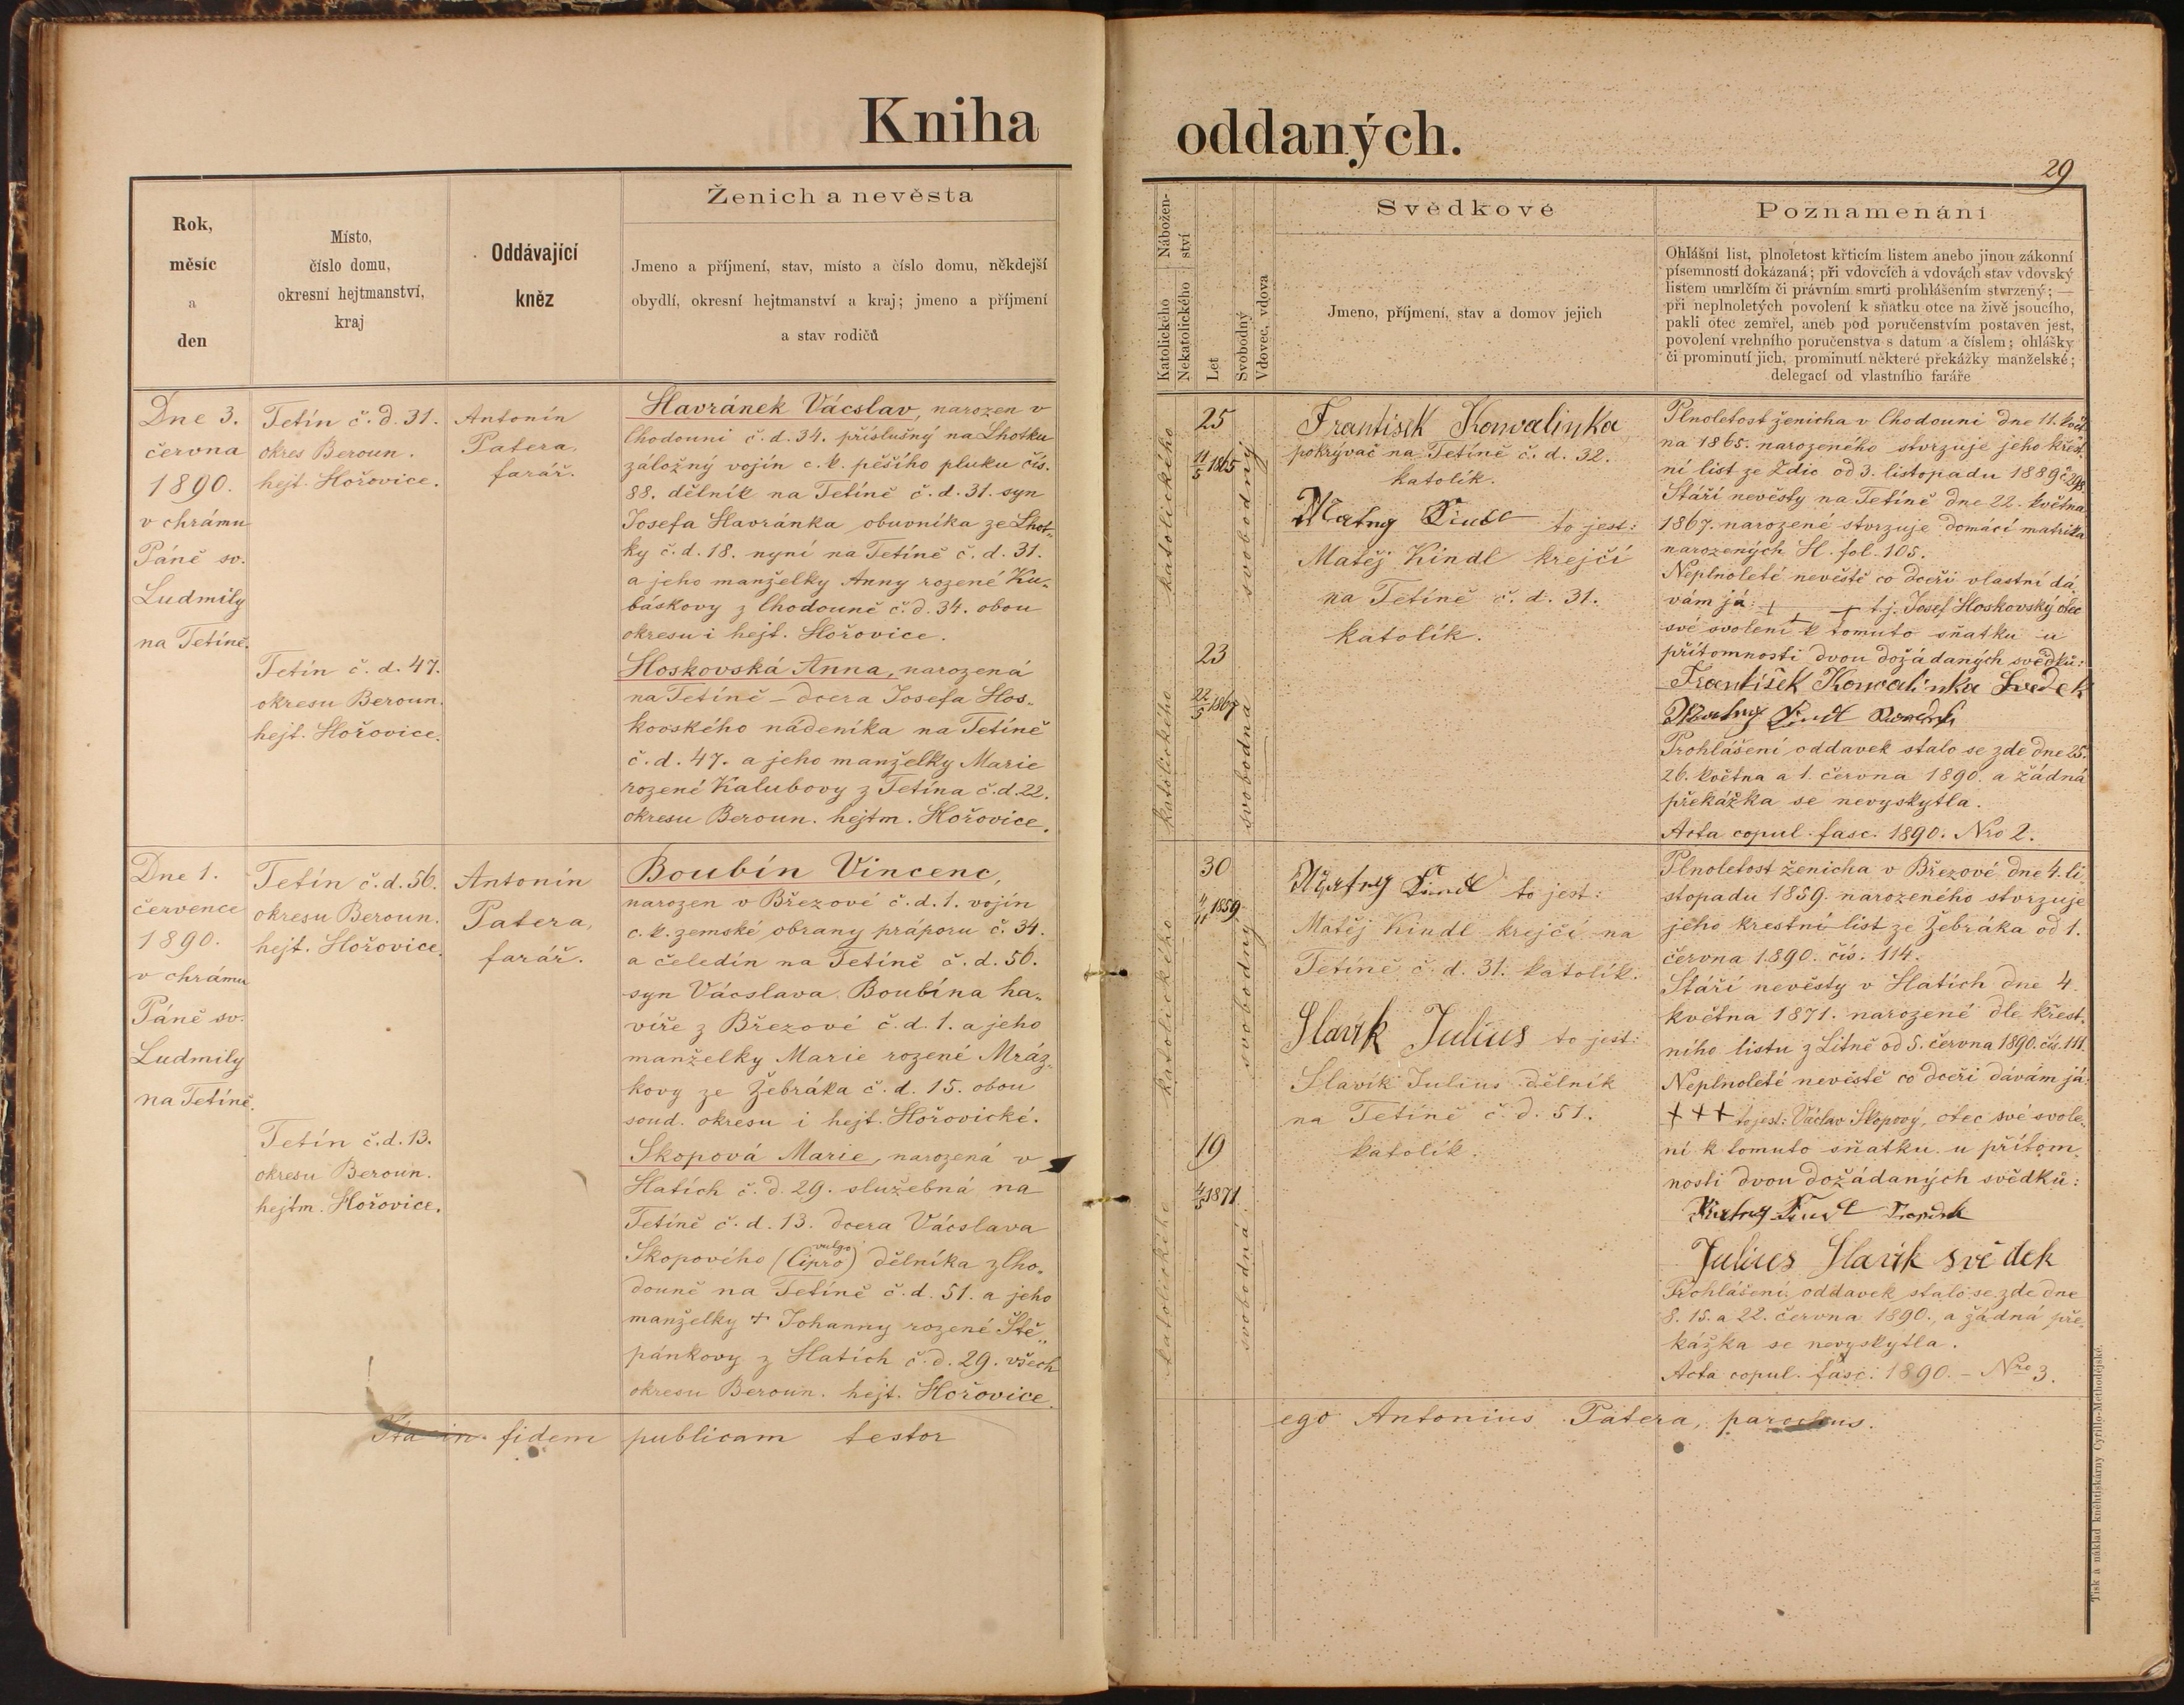 Kniha
oddaných.
29
Rok,
měsíc
a
den
Místo,
číslo domu,
okresní hejtmanství,
kraj
Oddávající
kněz
Ženich a nevěsta
Jmeno a příjmení, stav, místo a číslo domu, někdejší
obydlí, okresní hejtmanství a kraj; jmeno a příjmení
a stav rodičů
Nábožen-
ství
Katolického
Nekatolického
Let
Svobodný
Vdovec, vdova
Svědkové
Jmeno, příjmení, stav a domov jejich
Poznamenání
Ohlášní list, plnoletost křticím listem anebo jinou zákonní
písemností dokázaná; při vdovcích a vdovách stav vdovský
listem umrlčím či právním smrti prohlášením stvrzený; —
při neplnoletých povolení k sňatku otce na živě jsoucího,
pakli otec zemřel, aneb pod poručenstvím postaven jest,
povolení vrchního poručenstva s datum a číslem; ohlášky
či prominutí jich, prominutí některé překážky manželské;
delegací od vlastního faráře
Dne 3.
června
1890.
v chrámu
Páně sv.
Ludmily
na Tetíně.
Tetín č. d. 31.
okres Beroun.
hejt. Hořovice.
Tetín č. d. 47.
okresu Beroun.
hejt. Hořovice.
Antonín
Patera,
farář.
Havránek Vácslav, narozen v
Chodouni č. d. 34. příslušný na Lhotku
záložný vojín c. k. pěšího pluku čís.
88. dělník na Tetíně č. d. 31. syn
Josefa Havránka obuvníka ze Lhot-
ky č. d. 18. nyní na Tetíně č. d. 31.
a jeho manželky Anny rozené Ku-
báskovy z Chodouně č. d. 34. obou
okresu i hejt. Hořovice.
Hoskovská Anna, narozená
na Tetíně – dcera Josefa Hos-
kovského nádeníka na Tetíně
č. d. 47. a jeho manželky Marie
rozené Kalubovy z Tetína č. d. 22.
okresu Beroun. hejtm. Hořovice.
katolického
katolického
25
11/5 1865
23
22/5 1867
svobodný
svobodná
František Konvalinka
pokrývač na Tetíně č. d. 32.
katolík.
to jest:
Matěj Kindl krejčí
na Tetíně č. d. 31.
katolík.
Plnoletost ženicha v Chodouni dne 11. květ-
na 1865. narozeného stvrzuje jeho křest-
ní list ze Zdic od 3. listopadu 1889 č. 298.
Stáří nevěsty na Tetíně dne 22. května
1867. narozené stvrzuje domácí matrika
narozených H. fol. 105.
Neplnoleté nevěstě co dceři vlastní dá-
vám já: + + + t. j. Josef Hoskovský otec
své svolení k tomuto sňatku u
přítomnosti dvou dožádaných svědků:
František Konvalinka Svedek
Prohlášení oddavek stalo se zde dne 25.
26. května a 1. června 1890. a žádná
překážka se nevyskytla.
Acta copul. fasc. 1890. Nro 2.
Dne 1.
července
1890.
v chrámu
Páně sv.
Ludmily
na Tetíně.
Tetín č. d. 56.
okresu Beroun.
hejt. Hořovice.
Tetín č. d. 13.
okresu Beroun.
hejtm. Hořovice.
Antonín
Patera,
farář.
Boubín Vincenc,
narozen v Březové č. d. 1. vojín
c. k. zemské obrany práporu č. 34.
a čeledín na Tetíně č. d. 56.
syn Vácslava Boubína ha-
víře z Březové č. d. 1. a jeho
manželky Marie rozené Mráz-
kovy ze Žebráka č. d. 15. obou
soud. okresu i hejt. Hořovické.
Skopová Marie, narozená v
Hatích č. d. 29. služebná na
Tetíně č. d. 13. dcera Vácslava
Skopového (vulgo Cipro) dělníka z Cho-
douně na Tetíně č. d. 51. a jeho
manželky + Johanny rozené Ště-
pánkovy z Hatích č. d. 29. všech
okresu Beroun. hejt. Hořovice.
katolického
katolického
30
4/11 1859
19
4/5 1871
svobodný
svobodná
to jest:
Matěj Kindl krejčí na
Tetíně č. d. 31. katolík.
Slavík Julius to jest:
Slavík Julius dělník
na Tetíně č. d. 51.
katolík.
Plnoletost ženicha v Březové dne 4. li-
stopadu 1859. narozeného stvrzuje
jeho krestní list ze Žebráka od 1.
června 1890. čís. 114.
Stáří nevěsty v Hatích dne 4.
května 1871. narozené dle křest-
ního listu z Litně od 5. června 1890. čís. 111.
Neplnoleté nevěstě co dceři dávám já:
+ + + to jest: Václav Skopový, otec své svole-
ní k tomuto sňatku u přítom-
nosti dvou dožádaných svědků:
Julius Slavík svědek
Prohlášení oddavek stalo se zde dne
8. 15. a 22. června 1890., a žádná pře-
kážka se nevyskytla.
Acta copul. fasc: 1890. – Nro 3.
Ita in fidem publicam testor
ego Antonius Patera, parochus.
Tisk a náklad knihtiskárny Cyrillo-Methodějské.